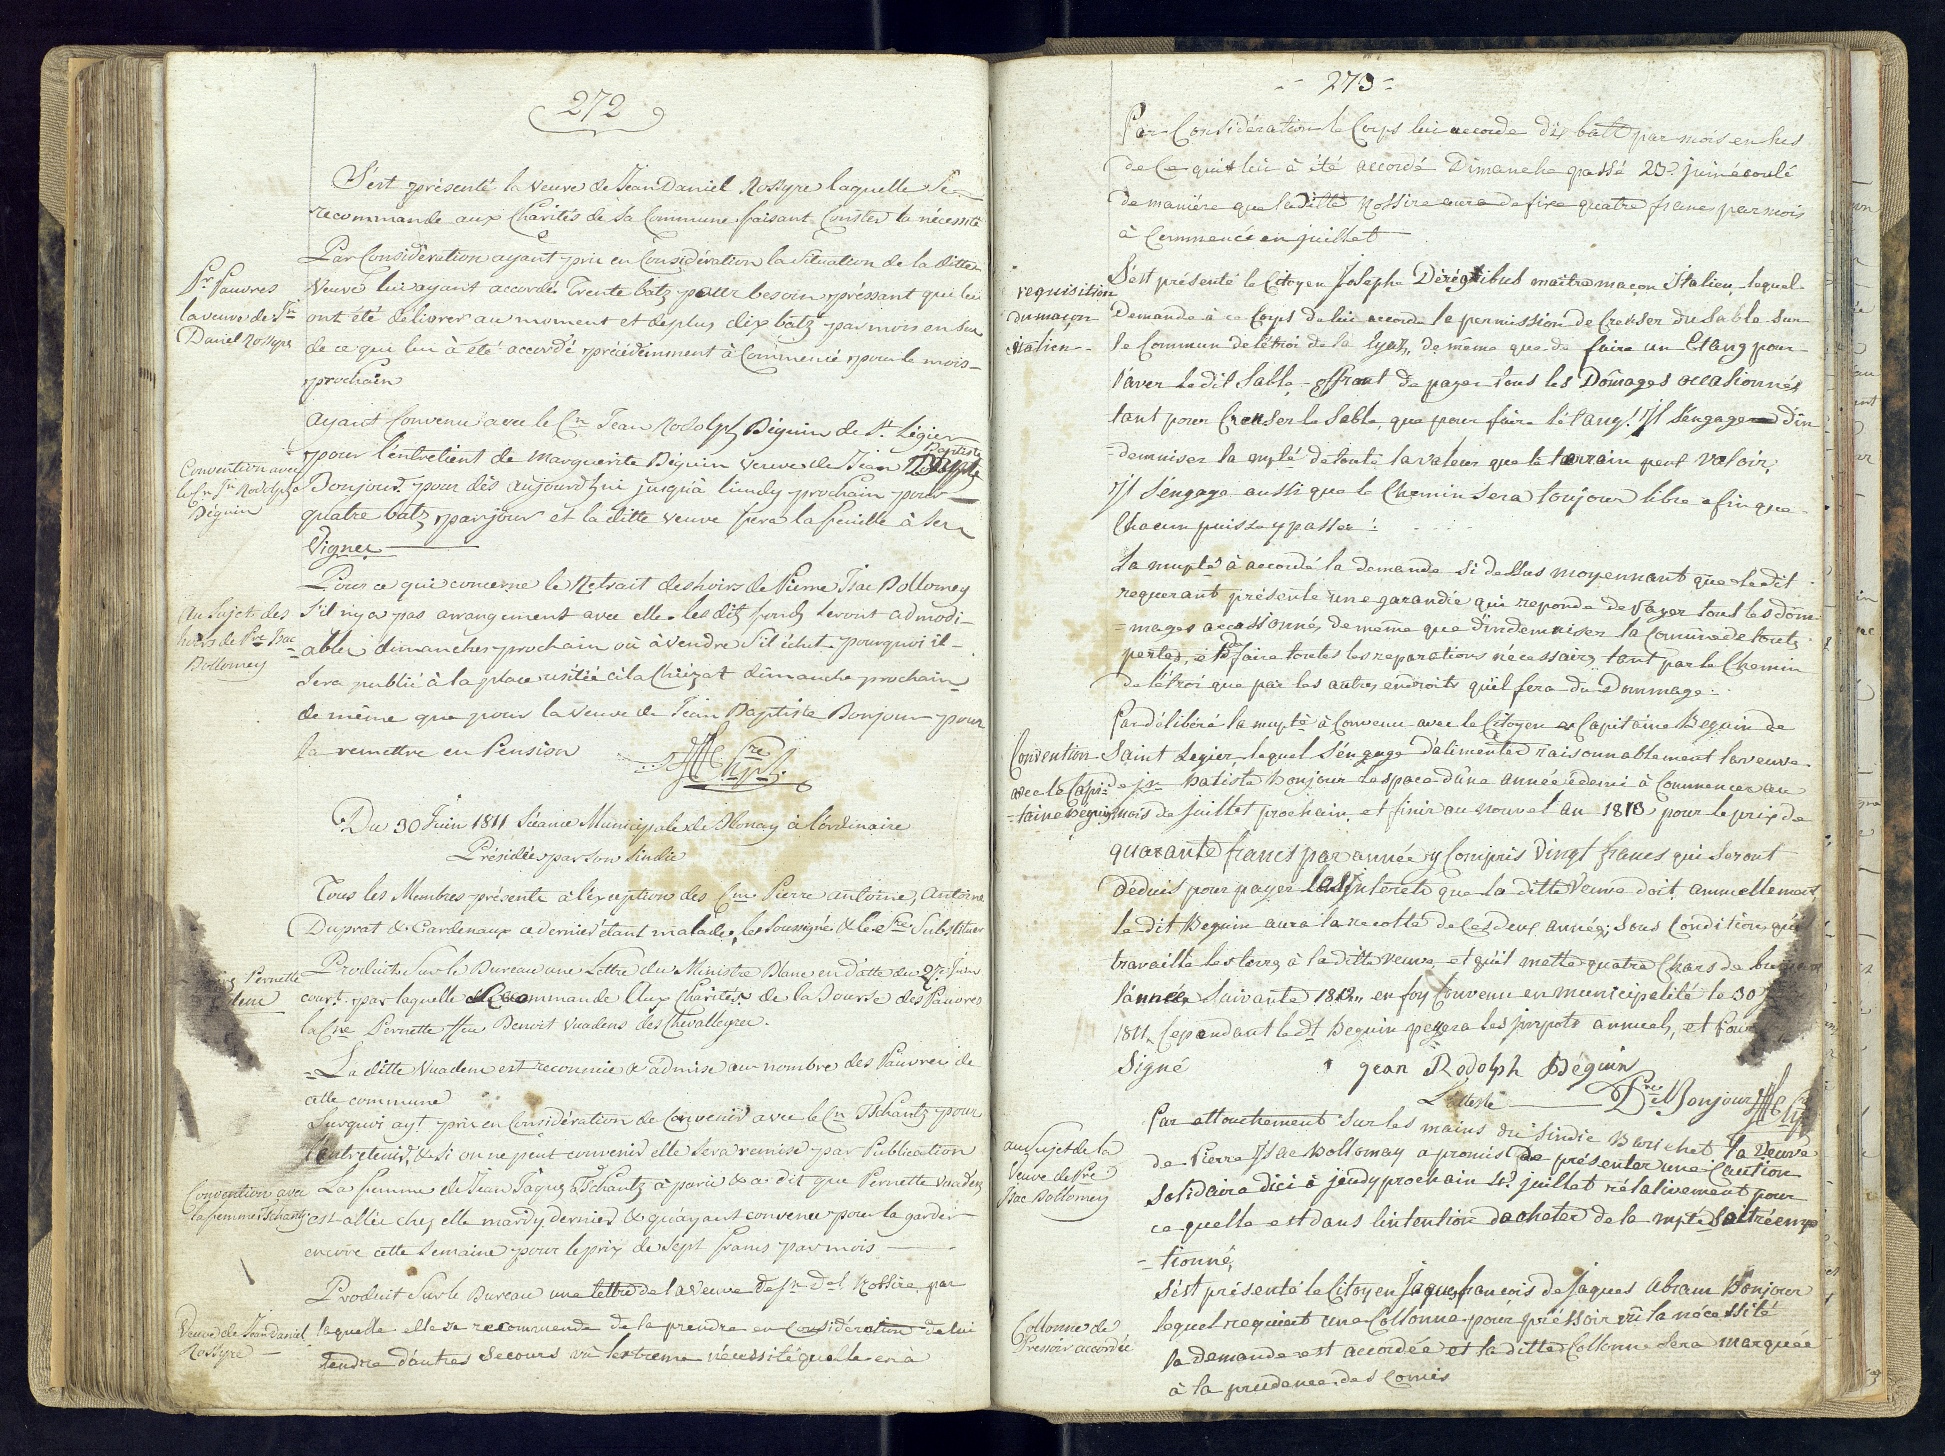 272
S'est présenté la veuve de Jean Daniel Rossyre laquelle se
recommande aux Charités de sa Commune faisant Conster la nécessité
Par Considération ayant pris en Considération la Situation de la ditte
Pr Pauvres
la veuve de Jn
Daniel Rossyre
Veuve lui ayant accordé Trente batz pour besoin préssant qui lui
ont été delivrer au moment et de plus dix batz par mois en sus
de ce qui lui à été accordé précédemment à Commencé pour le mois
prochain
ayant Convenu avec le Cn Jean Rodolph Béguin de St Légier
Convention avec
le Cn Jn Rodolph
Béguin
pour l'éntretient de Marguerite Béguin veuve de Jean Baptiste
Bonjour pour dès aujourd'hui jusqu'à lundy prochain pour
quatre batz par jour et la ditte veuve fera la feuille à ser
Vigner
Au Sujet des
hoirs de Pre Isac
Dollomey
Pour ce qui concerne le Retrait des hoirs de Pierre Isac Dollomey
S'il n'y a pas arrangement avec elle les dits fonds seront admodi-
ables dimanche prochain où à vendre S'il échut pourquoi il
sera publié à la place usitée à la Chiézat dimanche prochain
de même que pour la veuve de Jean Baptiste Bonjour pour
la remettre en Pension
Du 30 Juin 1811 Séance Municipale de Blonay à l'ordinaire
Présidée par son Sindic
Tous les Membres présents à l'éxception des Cns Pierre Antoine, Antoine
Duprat & Cardenaux ce dernier étant malade, le Soussigné & le Sre Substituer
Pernette
Produit Sur le Bureau une Lettre du Ministre Blanc en datte du 27e Juin
court. par laquelle Recommande Aux Charités de la Bourse des Pauvres
la Cne Pernette ffeu Benoit Vuadens des Chevalleyres.
La ditte Vuadens est reconnue & admise au nombre des Pauvres de
cette commune
Surquoi ayt pris en Considération de Convenir avec le Cn Tschantz pour
l'entretenir, & si on ne peut convenir elle Sera remise par Publication
Convention avec
la femme Tschantz
La femme de Jean Jaques Tschantz à paru & a dit que Pernette Vuadens
est allée chez elle mardy dernier & qu'ayant convenu pour la garder
encore cette Semaine pour le prix de sept francs par mois
Veuve de Jean daniel
Rossyre
Produit Sur le Bureau une lettre de la Veuve de Jn Dl Rossire par
laquelle elle se recommende de la prendre en Considération de lui
tendre d'autres Secours vû lextreme nécessité qu'elle en à
273
Par Considération le Corps lui accorde dix batt par mois en sus
de Ce qui lui à été accordé Dimanche passé 23e juin écoulé
de maniére que la ditte Rossire aura de fixe quatre francs par mois
à Commencé en juillet
requisition
du maçon
Italien
S'est présenté le Citoyen Joseph Dérégibus maitre maçon Italien, lequel
Demande à ce Corps de lui accorde la permission de Creuser du Sable sur
le Commun de létroi de la lyaz, de même que de faire un Etang pour
laver le dit Sable, offrant de payer tous les Dômages occasionnés
tant pour Creuser le Sable, que pour faire létang! Il s'engage d'in
=demniser la mpté de toute la valeur que le tarrain peut valoir;
Il s'engage aussi que le Chemin sera toujour libre afin que
Chacun puisse y passer:
La mupté à accordé la demande Si dessus moyennant que le dit
requerant présente une garandie qui reponde de Payer tout les dôm
=mages occassionnés de même que dindemniser la Commune de touts
pertes, é de faire toutes les reparations nécessaires tant par le Chemin
de létroi que par les autres endroits qu'il fera du Dommage:
Convention
avec le Capi
=taine Beguin
Par délibéré la mupté à Convenu avec le Citoyen Capitaine Beguin de
Saint Legier, lequel s'éngage d'alimenter raisonnablement la veuve
de jn Batiste Bonjour lespace d'une année é demi à Commencer au
mois de juillet prochain, et finir au nouvel an 1813 pour le prix de
quarante francs par année y Compris Vingt francs qui seront
déduis pour payer les Intérets que la ditte Veuve doit annuellement,
le dit Beguin aura la recolte de Ces deux années; sous Condition qu'il
travaille les terres à la ditte veuve, et qu'il mette quatre Chars de
lannée Suivante 1812, en foy Convenu en municipalité le 30
1811, Cependant le dt Beguin peyera les impots annuels, et
Signé jean Rodolph Béguin
L'atteste Pre Bonjour
au Sujet de la
Veuve de Pre
Isac Dollomey
Par attouchement Sur les mains du Sindic Borichet la Veuve
de Pierre Isac Dollomay a promis de présenter une Caution
Solidaire dici à jeudy prochain 4e juillet rélativement pour
ce quelle est dans lintention d'acheter de la mpté
=tionné,
Collonne de
Pressoir accordée
S'ést présenté le Citoyen Jaques francois de Jaques abram Bonjour
lequel requiert une Collonne pour préssoir vû la nécessité
la demande est accordée et la ditte Collonne Sera marquée
à la prudence des Comis